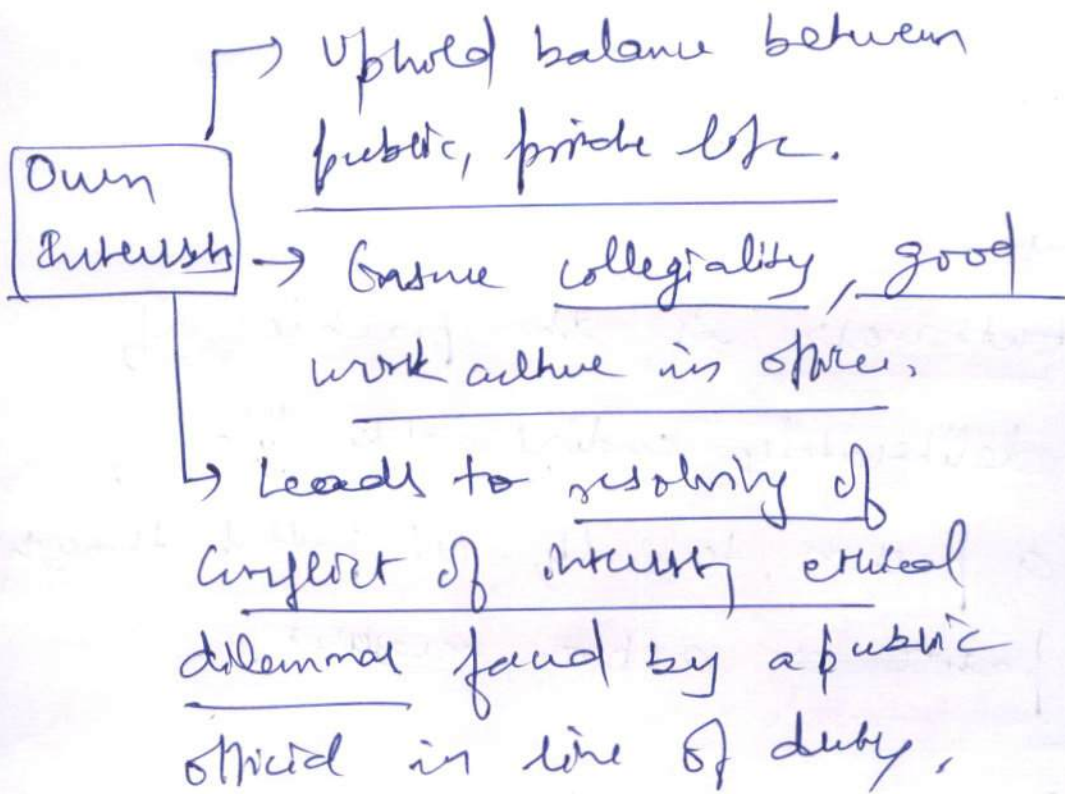 Uphold balance between
public, private life.
Own
Interests
Ensure collegiality, good
work culture in office.
Leads to resolving of
Conflict of interest, ethical
dilemmas faced by a public
official in line of duty.